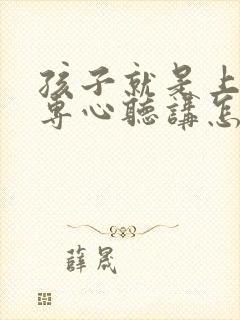 孩子就是上
專心聽講怎
薛晟